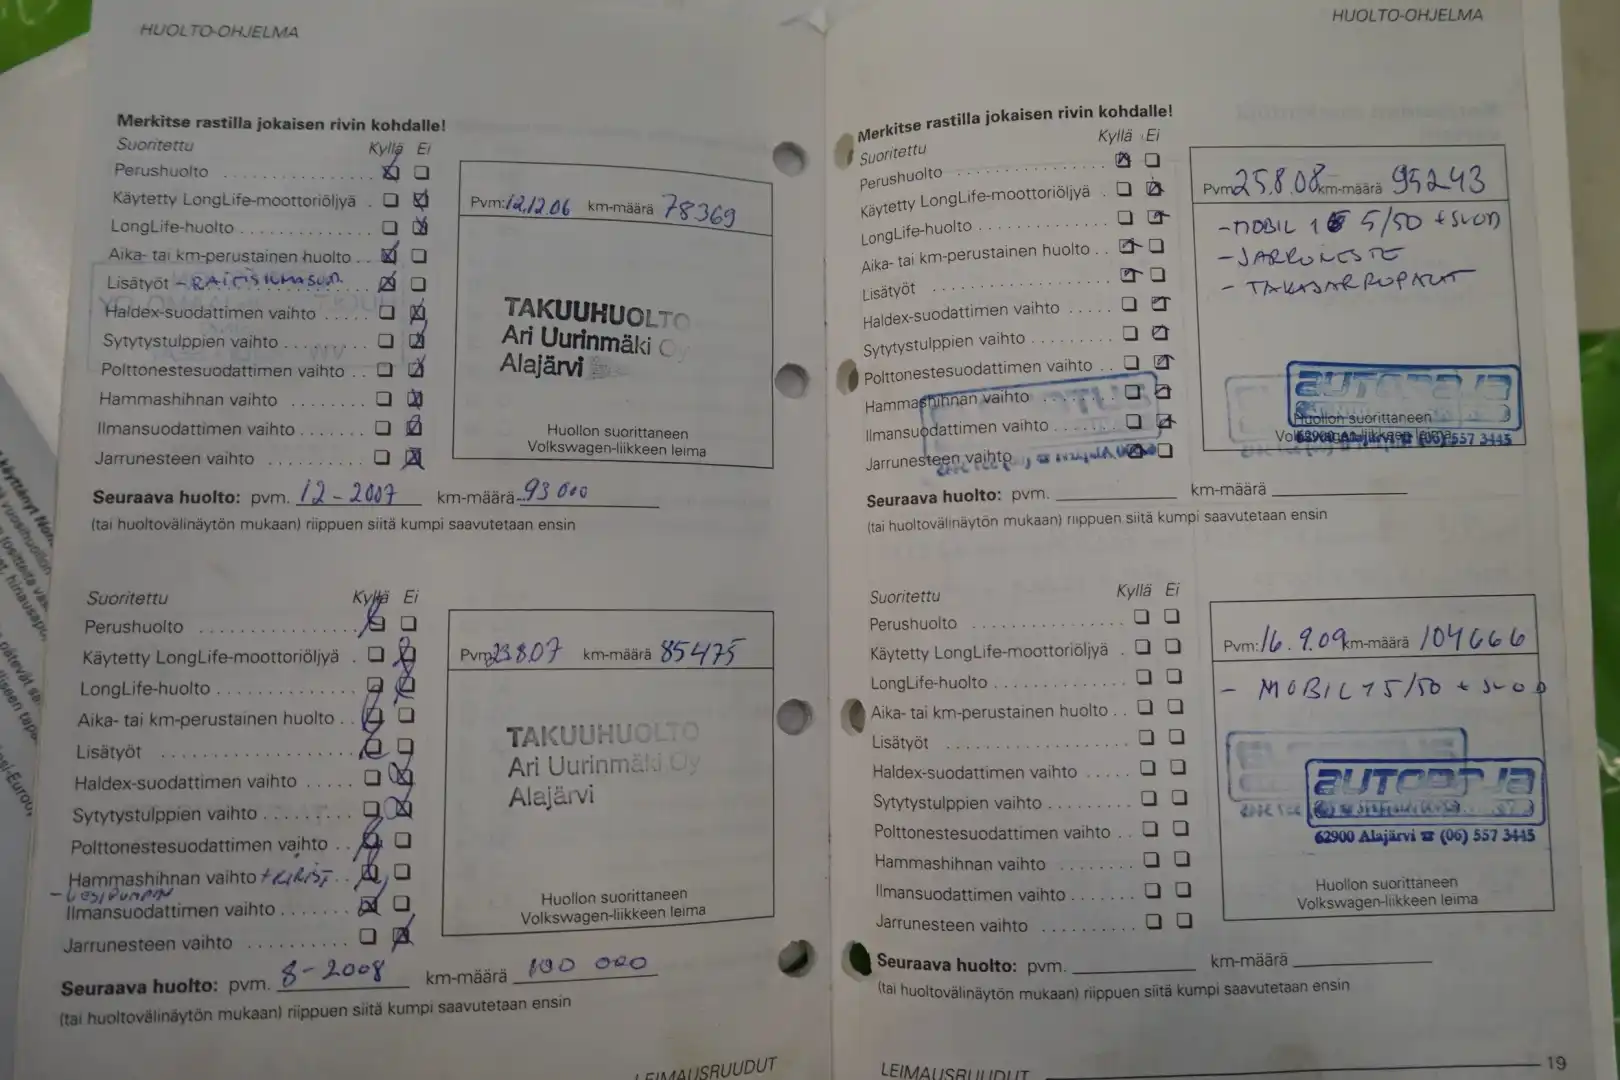 HUOLTO-OHJELMA
Merkitse rastilla jokaisen rivin kohdalle!
Suoritettu Kyllä Ei
Perushuolto
Käytetty LongLife-moottoriöljyä
LongLife-huolto
Aika- tai km-perustainen huolto
Lisätyöt
Haldex-suodattimen vaihto
Sytytystulppien vaihto
Polttonestesuodattimen vaihto
Hammashihnan vaihto
Ilmansuodattimen vaihto
Jarrunesteen vaihto
Pvm: 12.12.06 km-määrä 78369
TAKUUHUOLTO
Ari Uurinmäki Oy
Alajärvi
Huollon suorittaneen
Volkswagen-liikkeen leima
Seuraava huolto: pvm. 12-2007 km-määrä 93 000
(tai huoltovälinäytön mukaan) riippuen siitä kumpi saavutetaan ensin
Suoritettu Kyllä Ei
Perushuolto
Käytetty LongLife-moottoriöljyä
LongLife-huolto
Aika- tai km-perustainen huolto
Lisätyöt
Haldex-suodattimen vaihto
Sytytystulppien vaihto
Polttonestesuodattimen vaihto
Hammashihnan vaihto
Ilmansuodattimen vaihto
Jarrunesteen vaihto
Pvm: 23.8.07 km-määrä 85475
TAKUUHUOLTO
Ari Uurinmäki Oy
Alajärvi
Huollon suorittaneen
Volkswagen-liikkeen leima
Seuraava huolto: pvm. 8-2008 km-määrä 100 000
(tai huoltovälinäytön mukaan) riippuen siitä kumpi saavutetaan ensin
LEIMAUSRUUDUT
HUOLTO-OHJELMA
Merkitse rastilla jokaisen rivin kohdalle!
Suoritettu Kyllä Ei
Perushuolto
Käytetty LongLife-moottoriöljyä
LongLife-huolto
Aika- tai km-perustainen huolto
Lisätyöt
Haldex-suodattimen vaihto
Sytytystulppien vaihto
Polttonestesuodattimen vaihto
Hammashihnan vaihto
Ilmansuodattimen vaihto
Jarrunesteen vaihto
Pvm 25.8.08 km-määrä 95243
- MOBIL 1 5/50 + SUOD
- JARRUNESTE
- TAKAJARRUPALAT
AUTOPAJA
Huollon suorittaneen
62900 Alajärvi ☎ (06) 557 3445
Seuraava huolto: pvm. km-määrä
(tai huoltovälinäytön mukaan) riippuen siitä kumpi saavutetaan ensin
Suoritettu Kyllä Ei
Perushuolto
Käytetty LongLife-moottoriöljyä
LongLife-huolto
Aika- tai km-perustainen huolto
Lisätyöt
Haldex-suodattimen vaihto
Sytytystulppien vaihto
Polttonestesuodattimen vaihto
Hammashihnan vaihto
Ilmansuodattimen vaihto
Jarrunesteen vaihto
Pvm: 16.9.09 km-määrä 104666
- MOBIL 1 5/50 + SUOD
AUTOPAJA
62900 Alajärvi ☎ (06) 557 3445
Huollon suorittaneen
Volkswagen-liikkeen leima
Seuraava huolto: pvm. km-määrä
(tai huoltovälinäytön mukaan) riippuen siitä kumpi saavutetaan ensin
LEIMAUSRUUDUT 19